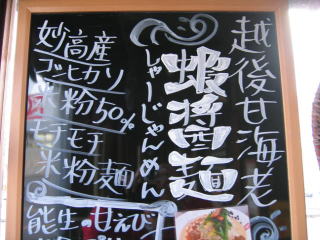 越後甘海老
蝦醤麺
しゃーじゃんめん
妙高産
コシヒカリ
米粉50%
モチモチ
米粉麺
能生の甘えび